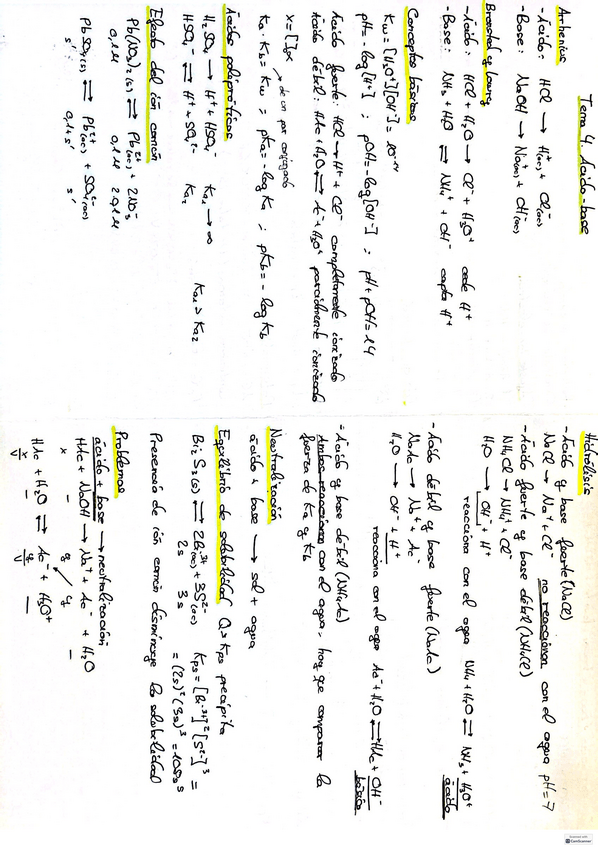 Tema 4. Ácido-base
Arrhenius
- Ácido: HCl → H⁺(ac) + Cl⁻(ac)
- Base: NaOH → Na⁺(ac) + OH⁻(ac)
Brønsted y Lowry
- Ácido: HCl + H₂O → Cl⁻ + H₃O⁺ cede H⁺
- Base: NH₃ + H₂O ⇌ NH₄⁺ + OH⁻ capta H⁺
Conceptos básicos
Kw = [H₃O⁺][OH⁻] = 10⁻¹⁴
pH = -log[H⁺] ; pOH = -log[OH⁻] ; pH + pOH = 14
Ácido fuerte: HCl → H⁺ + Cl⁻ completamente ionizado
Ácido débil: HAc + H₂O ⇌ Ac⁻ + H₃O⁺ parcialmente ionizado
x = []₀α
de un par conjugado
Ka · Kb = Kw ; pKa = -log Ka ; pKb = -log Kb
Ácidos polipróticos
H₂SO₄ → H⁺ + HSO₄⁻ Ka₁ → ∞
HSO₄⁻ ⇌ H⁺ + SO₄²⁻ Ka₂
Ka₁ > Ka₂
Efecto del ión común
Pb(NO₃)₂(s) ⇌ Pb²⁺(ac) + 2NO₃⁻
0,1M 0,1M 2·0,1M
PbSO₄(s) ⇌ Pb²⁺(ac) + SO₄²⁻(ac)
s' 0,1+s' s'
Hidrólisis
- Ácido y base fuerte (NaCl)
NaCl → Na⁺ + Cl⁻ no reacciona con el agua pH = 7
- Ácido fuerte y base débil (NH₄Cl)
NH₄Cl → NH₄⁺ + Cl⁻
reacciona con el agua NH₄ + H₂O ⇌ NH₃ + H₃O⁺
ácido
H₂O → OH⁻ + H⁺
- Ácido débil y base fuerte (NaAc)
NaAc → Na⁺ + Ac⁻
reacciona con el agua Ac⁻ + H₂O ⇌ HAc + OH⁻
básico
H₂O → OH⁻ + H⁺
- Ácido y base débil (NH₄Ac)
Ambos reaccionan con el agua, hay que comparar la
fuerza de Ka y Kb
Neutralización
ácido + base → sal + agua
Equilibrio de solubilidad Q > Kps precipita
Bi₂S₃(s) ⇌ 2Bi³⁺(ac) + 3S²⁻(ac) Kps = [Bi³⁺]²[S²⁻]³ =
2s 3s = (2s)²(3s)³ = 108s⁵
Presencia de ión común disminuye la solubilidad
Problemas
ácido + base → neutralización
HAc + NaOH → Na⁺ + Ac⁻ + H₂O
x - y y -
HAc + H₂O ⇌ Ac⁻ + H₃O⁺
x/V - y/V -
Scanned with
CamScanner